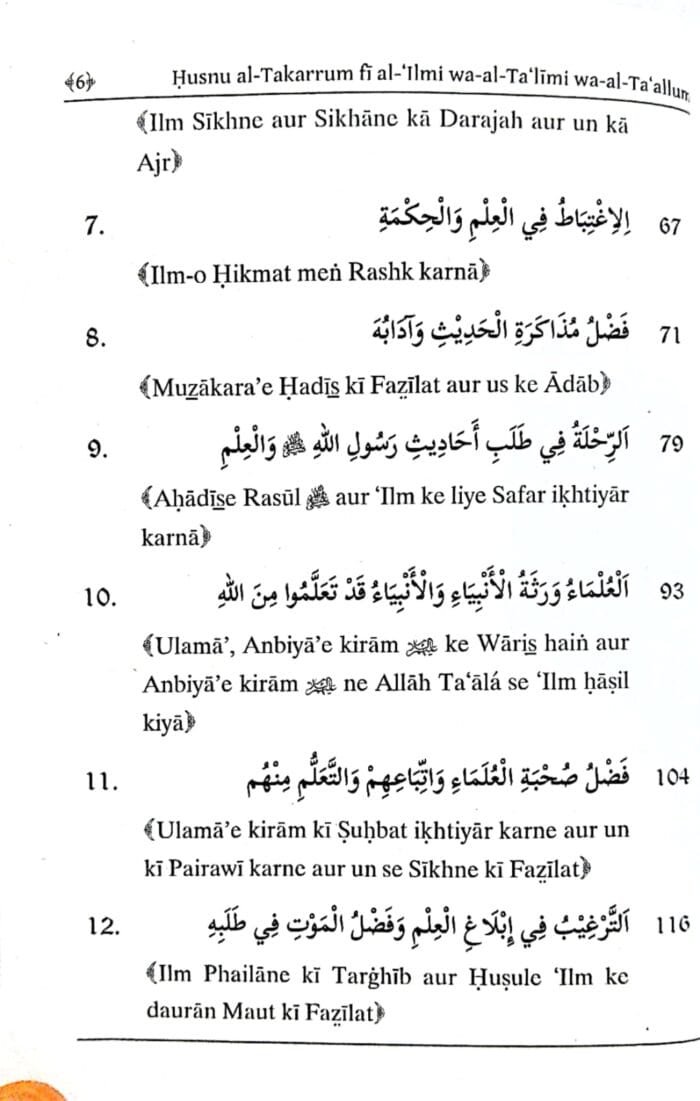 ﴾6﴿ Ḥusnu al-Takarrum fī al-‘Ilmi wa-al-Ta‘līmi wa-al-Ta‘allum
﴾Ilm Sīkhne aur Sikhāne kā Darajah aur un kā
Ajr﴿
7. اَلِاغْتِبَاطُ فِي الْعِلْمِ وَالْحِكْمَةِ 67
﴾Ilm-o Ḥikmat meṅ Rashk karnā﴿
8. فَضْلُ مُذَاكَرَةِ الْحَدِيْثِ وَآدَابُهُ 71
﴾Muz̲ākara’e Ḥadīs̲ kī Faz̤īlat aur us ke Ādāb﴿
9. اَلرِّحْلَةُ فِي طَلَبِ أَحَادِيثِ رَسُولِ اللهِ ﷺ وَالْعِلْمِ 79
﴾Aḥādīs̲e Rasūl ﷺ aur ‘Ilm ke liye Safar ikhtiyār
karnā﴿
10. اَلْعُلَمَاءُ وَرَثَةُ الْأَنْبِيَاءِ وَالْأَنْبِيَاءُ قَدْ تَعَلَّمُوا مِنَ اللهِ 93
﴾Ulamā’, Anbiyā’e kirām ke Wāris̲ hain aur
Anbiyā’e kirām ne Allāh Ta‘ālá se ‘Ilm ḥāṣil
kiyā﴿
11. فَضْلُ صُحْبَةِ الْعُلَمَاءِ وَاتِّبَاعِهِمْ وَالتَّعَلُّمِ مِنْهُم 104
﴾Ulamā’e kirām kī Ṣuḥbat ikhtiyār karne aur un
kī Pairawī karne aur un se Sīkhne kī Faz̤īlat﴿
12. اَلتَّرْغِيْبُ فِي إِبْلَاغِ الْعِلْمِ وَفَضْلُ الْمَوْتِ فِي طَلَبِهِ 116
﴾Ilm Phailāne kī Tarġhīb aur Ḥuṣule ‘Ilm ke
daurān Maut kī Faz̤īlat﴿